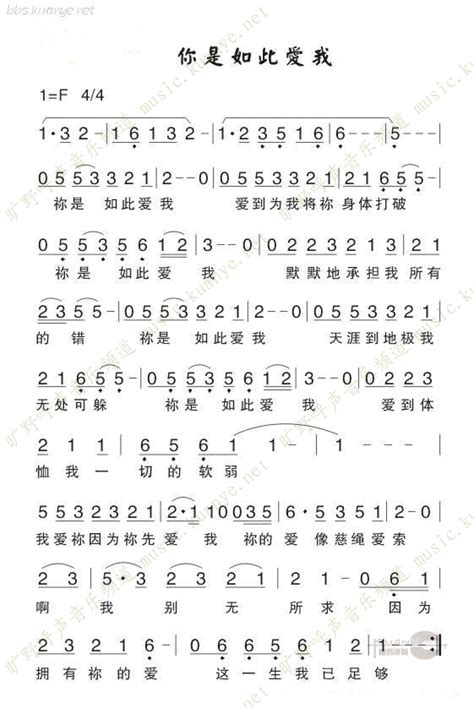 bbs.kuanye.net
你是如此愛我
1=F 4/4
1·32-|16132-|1·23516|6---|5---|
0553321|2--0|0553321|2165-|
祢是 如此爱我 爱到为我将祢 身体打破
05535612|3--0|0223213|21
祢是 如此爱 我 默默地承担我 所有
235-|0553321|2--0|0553321|
的错 祢是 如此爱我 天涯到地极我
2165-|05535612|3--0|023|
无处可躲 祢是 如此爱 我 爱到体
211|6561-|1---|
恤我一切的软弱
553 2321|2·10035|6535 31|2-0|
我爱祢因为祢先爱 我 祢的爱像慈绳爱索
23-|3·216-|23-|1-061|
啊 我 别 无 所求 因为
2321|6---|065612|1---:|
拥有祢的爱 这一生我已足够
旷野呼声音乐频道 music.kuanye.net